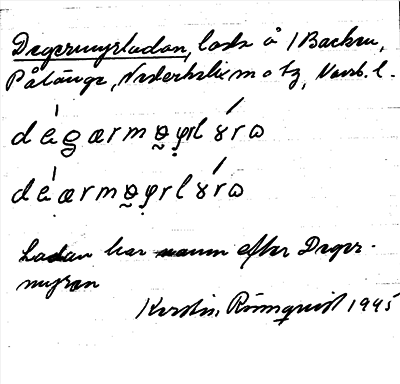 Degermyrladan, lada å 1 Backen,
Pålänge, Nederkalix sn o tg, Norrb. l.
dégærmɵyrlɣ́ra
déærmɵyrlɣ́ra
Ladan har namn efter Deger-
myran
Kerstin Rönnqvist 1945